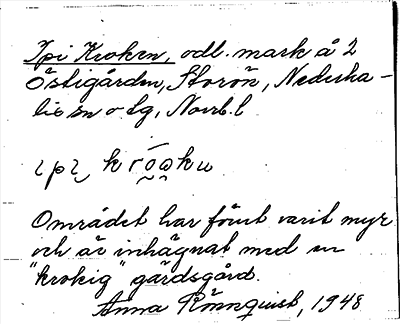 Ipi Kroken, odl. mark å 2
Östigården, Storön, Nederka-
lix sn o tg, Norrb. l
ɩpɩ krōǫku
Området har förut varit myr
och är inhägnat med en
"krokig" gärdsgård.
Anna Rönnquist, 1948